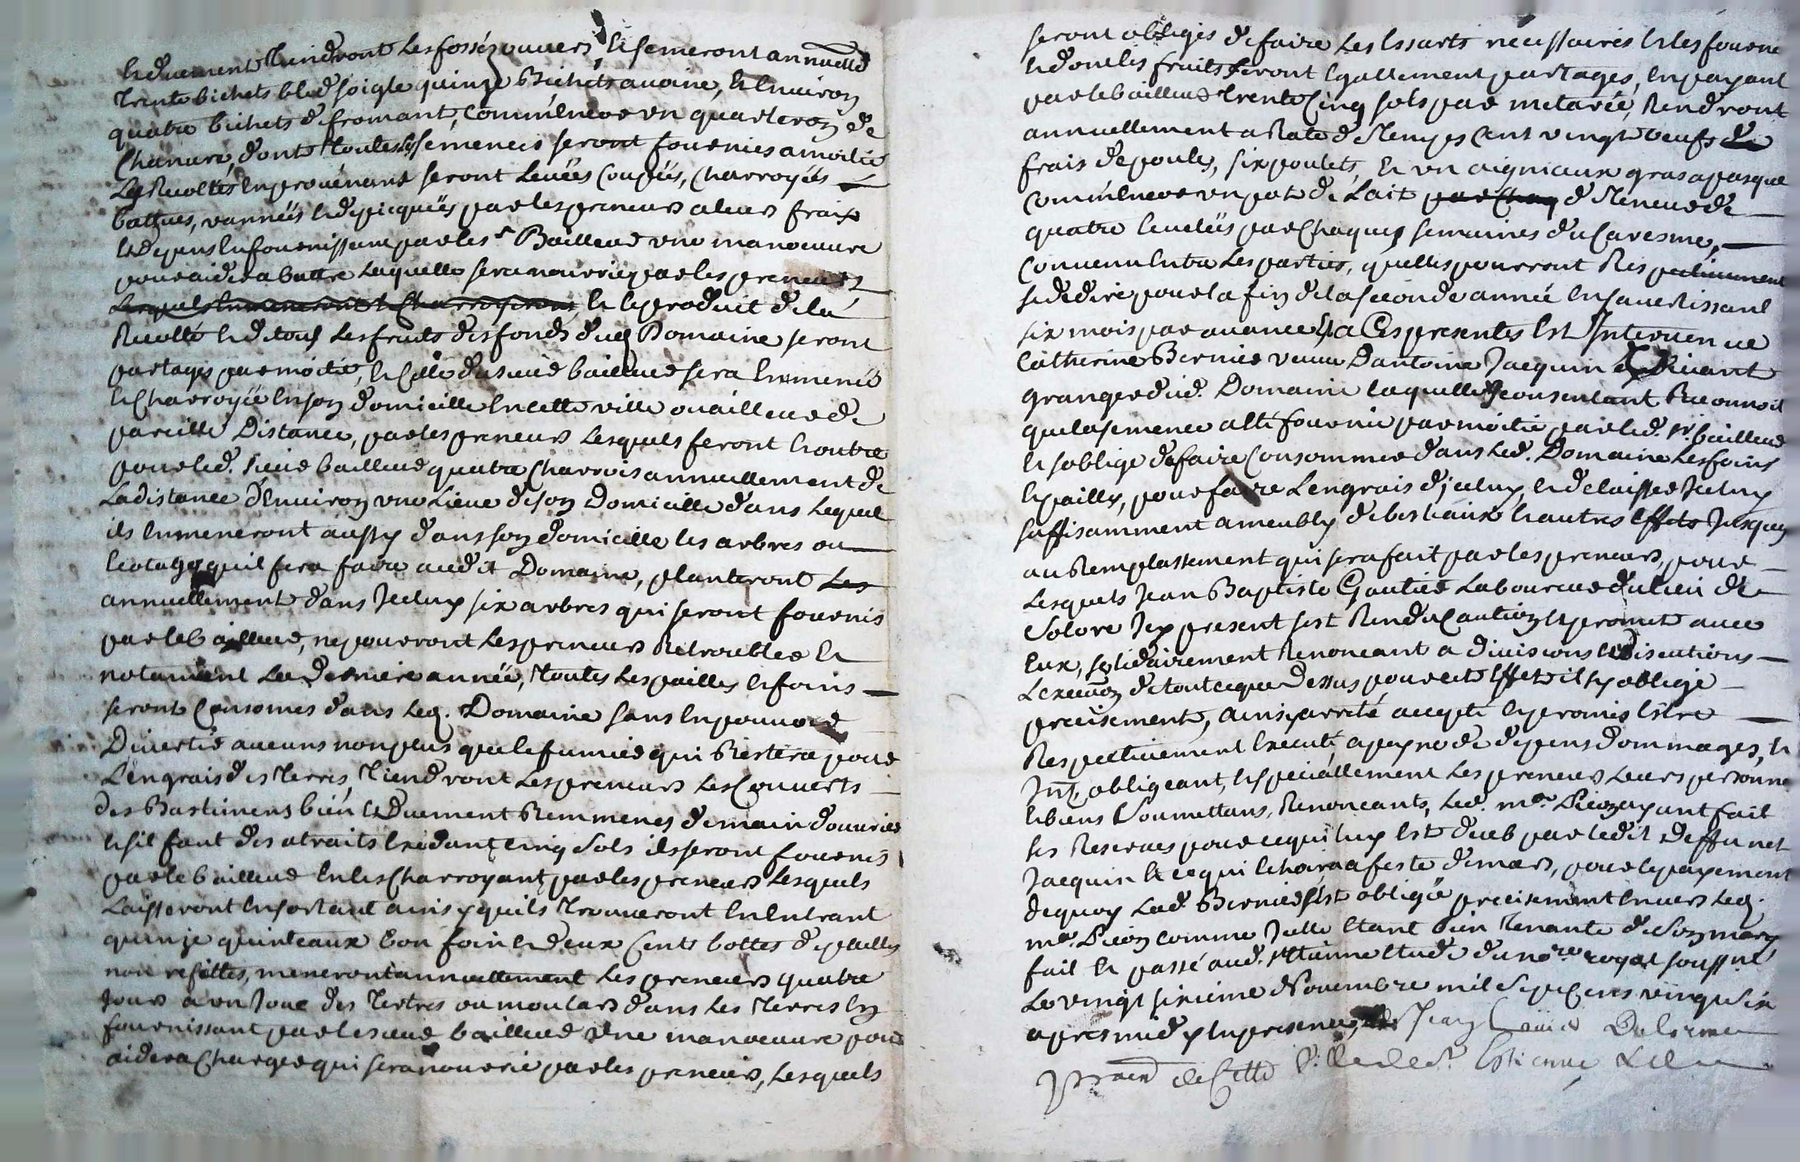 et duement tiendront les fossés ouuers, et semeront annuellem.t
trente bichets bled soigle quinze bichets auoine, et enuiron
quatre bichets de fromant, comm'encore un quarteron de
chanure, dont touttes les semences seront fournies a moitié
les recoltes en prouenans seront leuées coupées, charroyées
battues, vannées et depicquées par les preneurs a leurs fraix
et depens en fournissant par le s.r bailleur une manoeuure
pour aider a battre laquelle sera nourrie par les preneurs
lesquels emmeneront et charroyeront, et le produit de la
recolte et de tous les fruits des fonds dud. Domaine seront
partagés par moitié, et celle du sieur bailleur sera emmenée
et charroyée en son domicille en cette ville ou ailleurs de
pareille distance, par les preneurs lesquels feront en outre
pour led. sieur bailleur quatre charrois annuellement de
la distance d'enuiron une lieue de son domicille dans lequel
ils enmeneront aussy dans son domicille les arbres ou
ecotages quil fera faire audit Domaine, planteront les
annuellement dans iceluy six arbres qui seront fournis
par le bailleur, ne pourront les preneurs retroubler et
notament la derniere année, touttes les pailles et foins
seront consomés dans led. Domaine sans en pouuoir
diuertir aucuns non plus que le fumier qui restera pour
l'engrais des terres, tiendront les preneurs les couuerts
des bastimens bien et duement remmenés de main d'ouurier
et sil faut des atraits exedant cinq sols ils seront fournis
par le bailleur en les charroyant par les preneurs lesquels
laisseront en sortant ainsy quils trouueront en entrant
quinze quinteaux bon foin et deux cents bottes de pailles
non refittes, meneront annuellement les preneurs quatre
jours a un joug des tertres ou moulars dans les terres en
fournissant par le sieur bailleur une manoeuure pour
aider a charger qui sera nourrie par les preneurs, lesquels
seront obligés de faire les essarts necessaires et les fourn
et dont les fruits seront egallement partagés, en payant
par le bailleur trente cinq sols par metarée, rendront
annuellement a rate de temps cent vingt oeufs de
frais de poules, six poulets, et un aigniaux gras a pasque
comm'encore un pot de lait par chaq de teneur de
quatre leuées par chaques semaines du caresme,
conuenu entre les parties, quelles pourront respectiuement
se dedire pour la fin de la seconde année en sauertissant
six mois par auance. et a ces presentes est interuenue
Catherine Bernier veuue d'antoine Jacquin viuant
granger dud. Domaine laquelle consentant reconnoit
que la semence a esté fournie par moitié par led. s.r bailleur
et soblige de faire consommer dans led. Domaine les foins
et pailles, pour faire l'engrais d'iceluy, et de laisser iceluy
suffisamment ameubly de bestiaux et autres effets jusques
au remplassement qui sera fait par les preneurs, pour
lesquels Jean Baptiste Gautier laboureur du lieu de
Solore icy present sest rendu caution et promet auec
eux, solidairement renonceant a diuisions et discutions
l'execu.on de tout ce que dessus pour cet effet il sy oblige
precisement, ainsy arreté accepté et promis estre
respectiuement executé, a peyne de depens dommages, et
int., obligeant, et speciallement les preneurs leurs personne
et biens soumettans, renonceants, led. m.e Pieon ayant fait
ses reserues pour ce qui luy est dub par ledit deffunct
Jacquin et ce qui echoira a feste de mars, pour le payement
de quoy lad. Bernier sest obligée precisement enuers led.
m.e Pieon comme icelle etant bien tenante de son mary
fait et passé aud. s.t Etienne etude du no.re royal soussigné
Le vingt sixieme Nouembre mil sept cens vingt six
apres midy en presence,
de cette ville de s.t Estienne